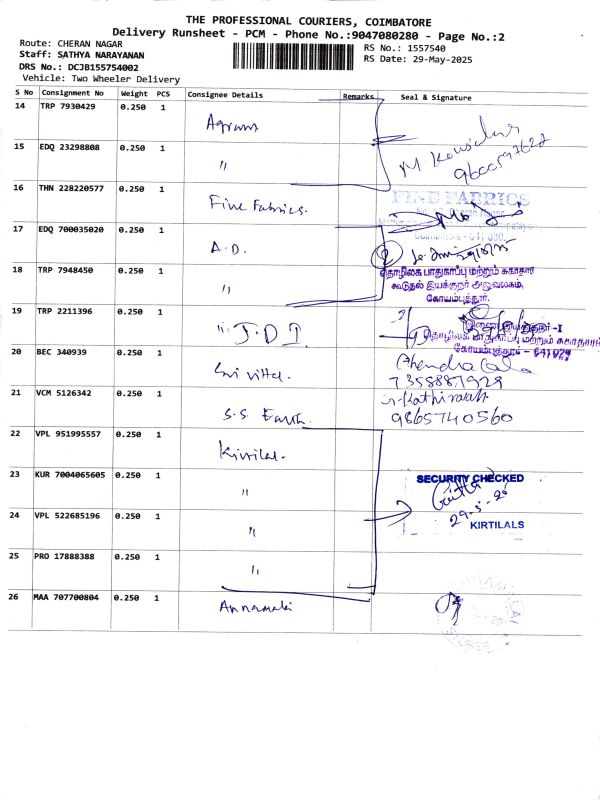 THE PROFESSIONAL COURIERS, COIMBATORE
Delivery Runsheet - PCM - Phone No.:9047080280 - Page No.:2
Route: CHERAN NAGAR
Staff: SATHYA NARAYANAN
DRS No.: DCJB155754002
Vehicle: Two Wheeler Delivery
RS No.: 1557540
RS Date: 29-May-2025
S No Consignment No Weight PCS Consignee Details Remarks Seal & Signature
14 TRP 7930429 0.250 1
15 EDQ 23298808 0.250 1 "
16 THN 228220577 0.250 1 Fine Fabrics. FINE FABRICS
17 EDQ 700035020 0.250 1 A.D.
18 TRP 7948450 0.250 1 "
தொழிலக பாதுகாப்பு மற்றும் சுகாதார
கூடுதல் இயக்குநர் அலுவலகம்,
கோயம்புத்தூர்.
19 TRP 2211396 0.250 1 " J.D I
இணை இயக்குநர்-I
தொழிலக பாதுகாப்பு மற்றும் சுகாதாரம்
கோயம்புத்தூர் - 641029
20 BEC 340939 0.250 1 Chendra Cala
7358887929
21 VCM 5126342 0.250 1 S.S. Earth. Kathiravan
9865740560
22 VPL 951995557 0.250 1 Kirtilal.
23 KUR 7004065605 0.250 1 " SECURITY CHECKED
29-5-25
24 VPL 522685196 0.250 1 " KIRTILALS
25 PRO 17888388 0.250 1 "
26 MAA 707700804 0.250 1 Annamalai